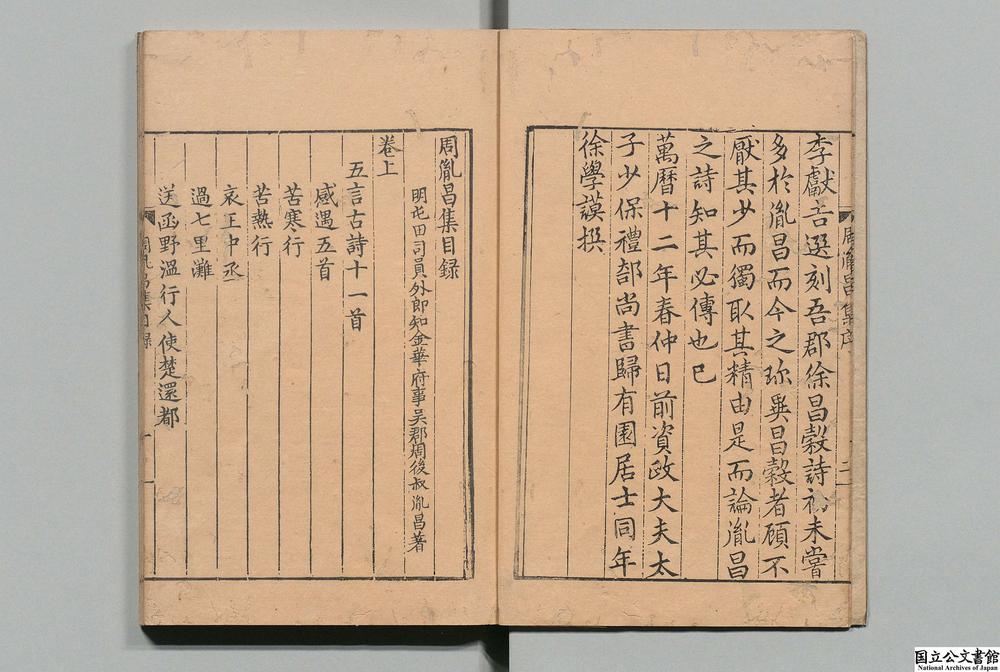 李獻吉選刻吾郡徐昌穀詩初未嘗
多於胤昌而今之珎異昌穀者顧不
厭其少而獨取其精由是而論胤昌
之詩知其必傳也已
萬曆十二年春仲日前資政大夫太
子少保禮部尚書歸有園居士同年
徐學謨撰
周胤昌集序
二
周胤昌集目録
明屯田司員外郎知金華府事吴郡周後叔胤昌著
卷上
五言古詩十一首
感遇五首
苦寒行
苦熱行
哀王中丞
過七里灘
送函野溫行人使楚還都
周胤昌集目録
一
国立公文書館
National Archives of Japan